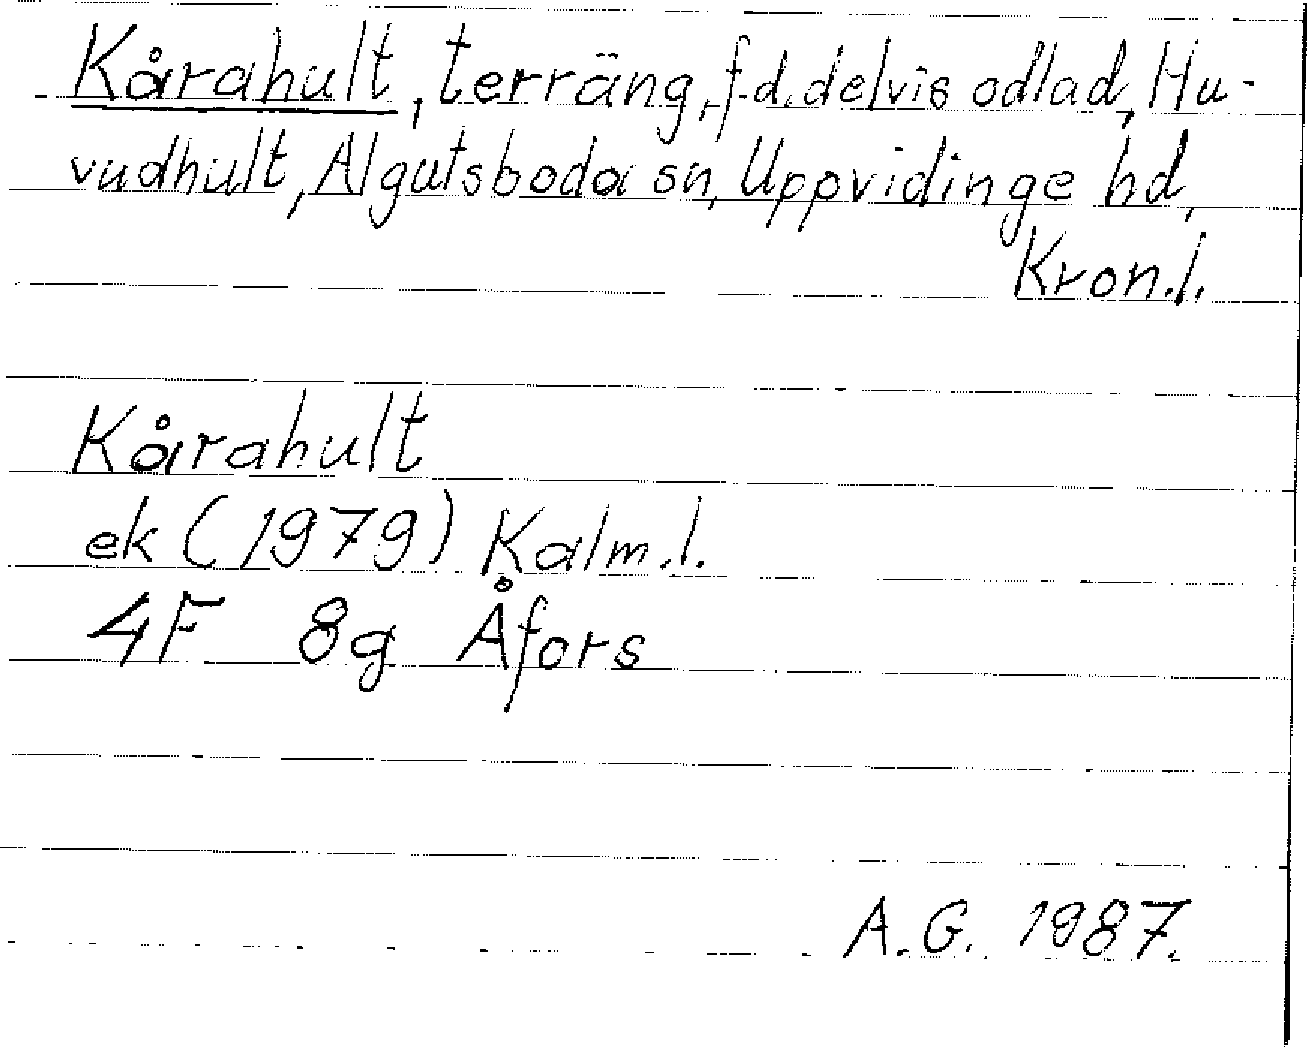 Kårahult, terräng, f.d. delvis odlad, Hu-
vudhult, Algutsboda sn, Uppvidinge hd,
Kron.l.
Kårahult
ek (1979) Kalm.l.
4F 8g Åfors
A.G. 1987.